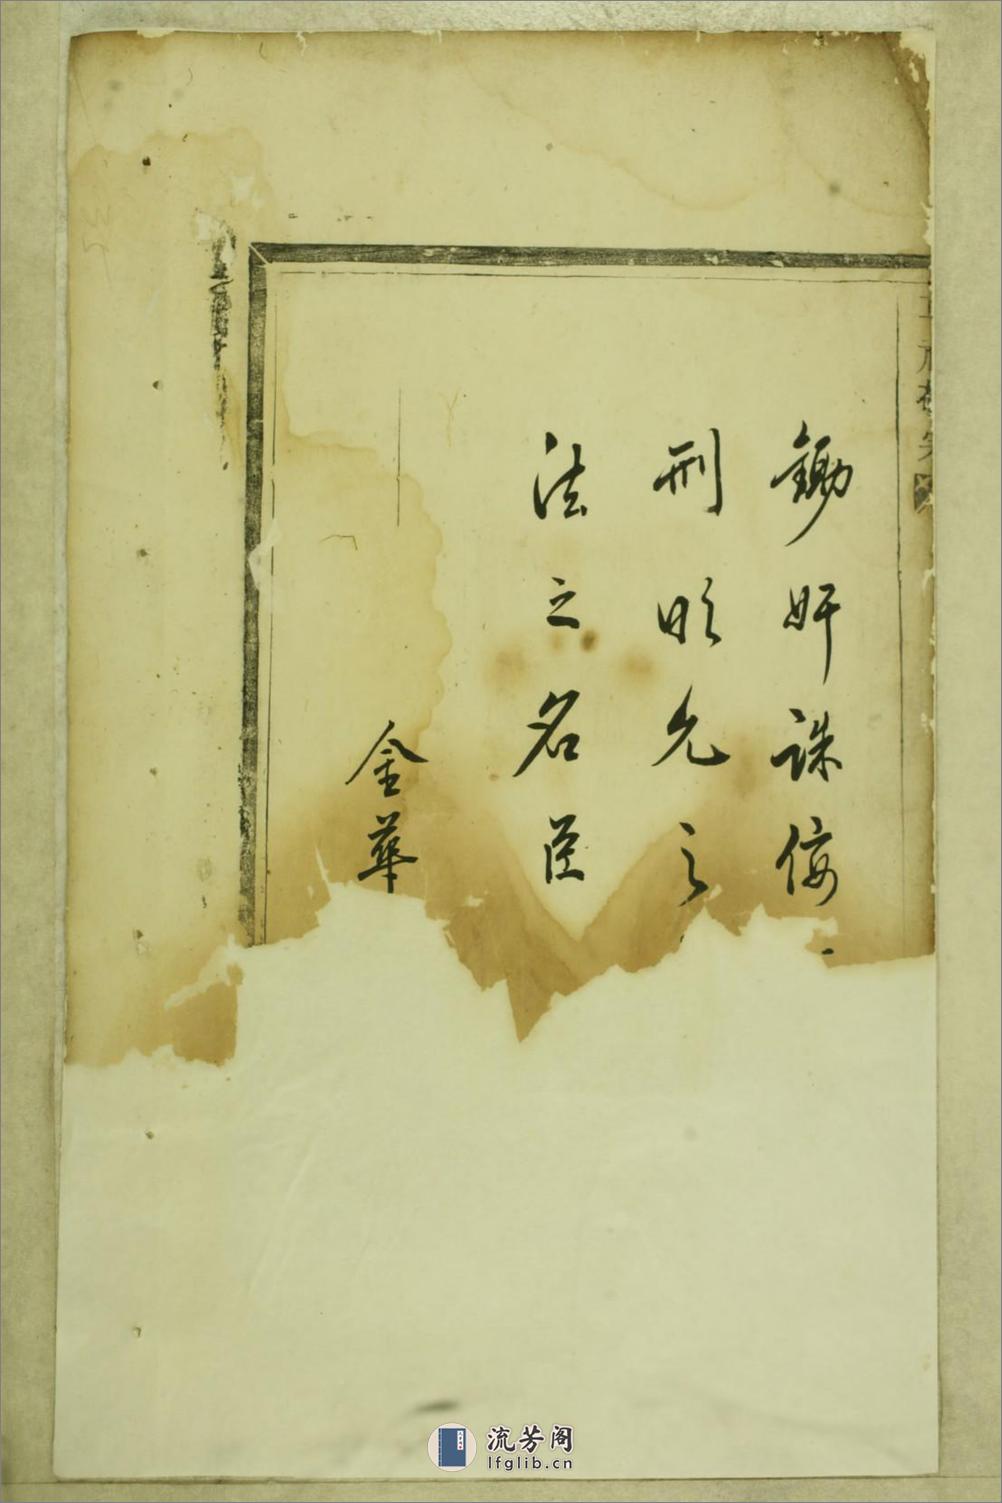 鋤奸誅佞
刑明允之
法之名臣
金華
流芳阁
lfglib.cn